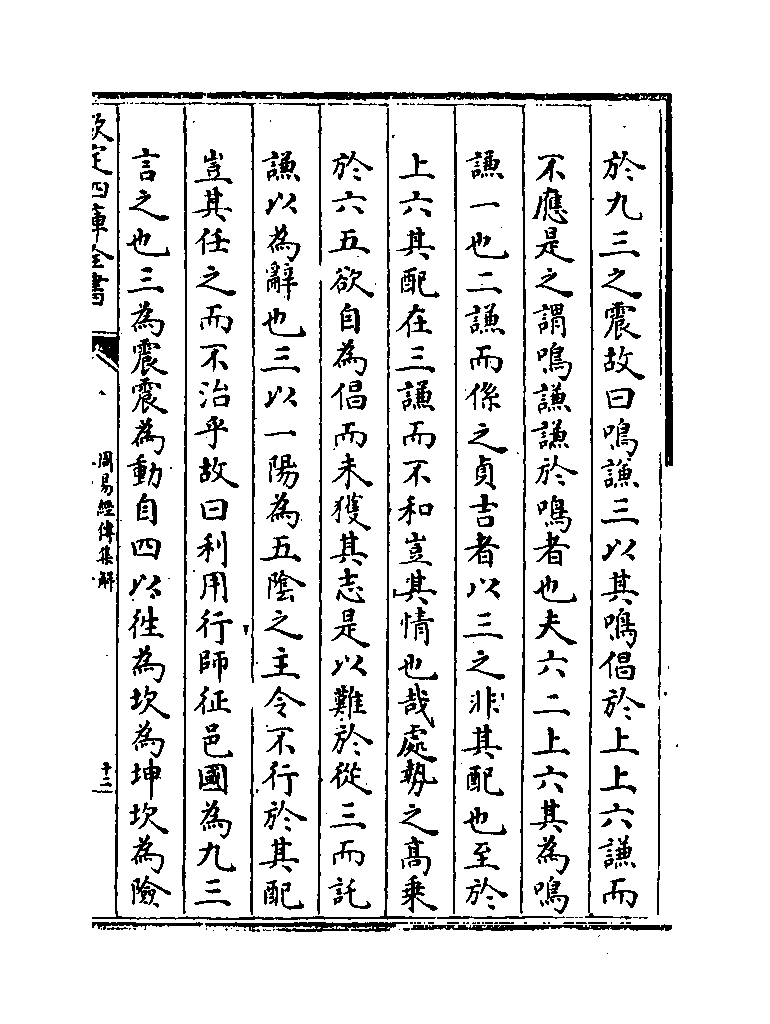 於九三之震故曰鳴謙三以其鳴倡於上上六謙而
不應是之謂鳴謙謙於鳴者也夫六二上六其為鳴
謙一也二謙而係之貞吉者以三之非其配也至於
上六其配在三謙而不和豈其情也哉處勢之高乘
於六五欲自為倡而未獲其志是以難於從三而託
謙以為辭也三以一陽為五陰之主令不行於其配
豈其任之而不治乎故曰利用行師征邑國為九三
言之也三為震震為動自四以徃為坎為坤坎為險
欽定四庫全書
周易經傳集解
十二